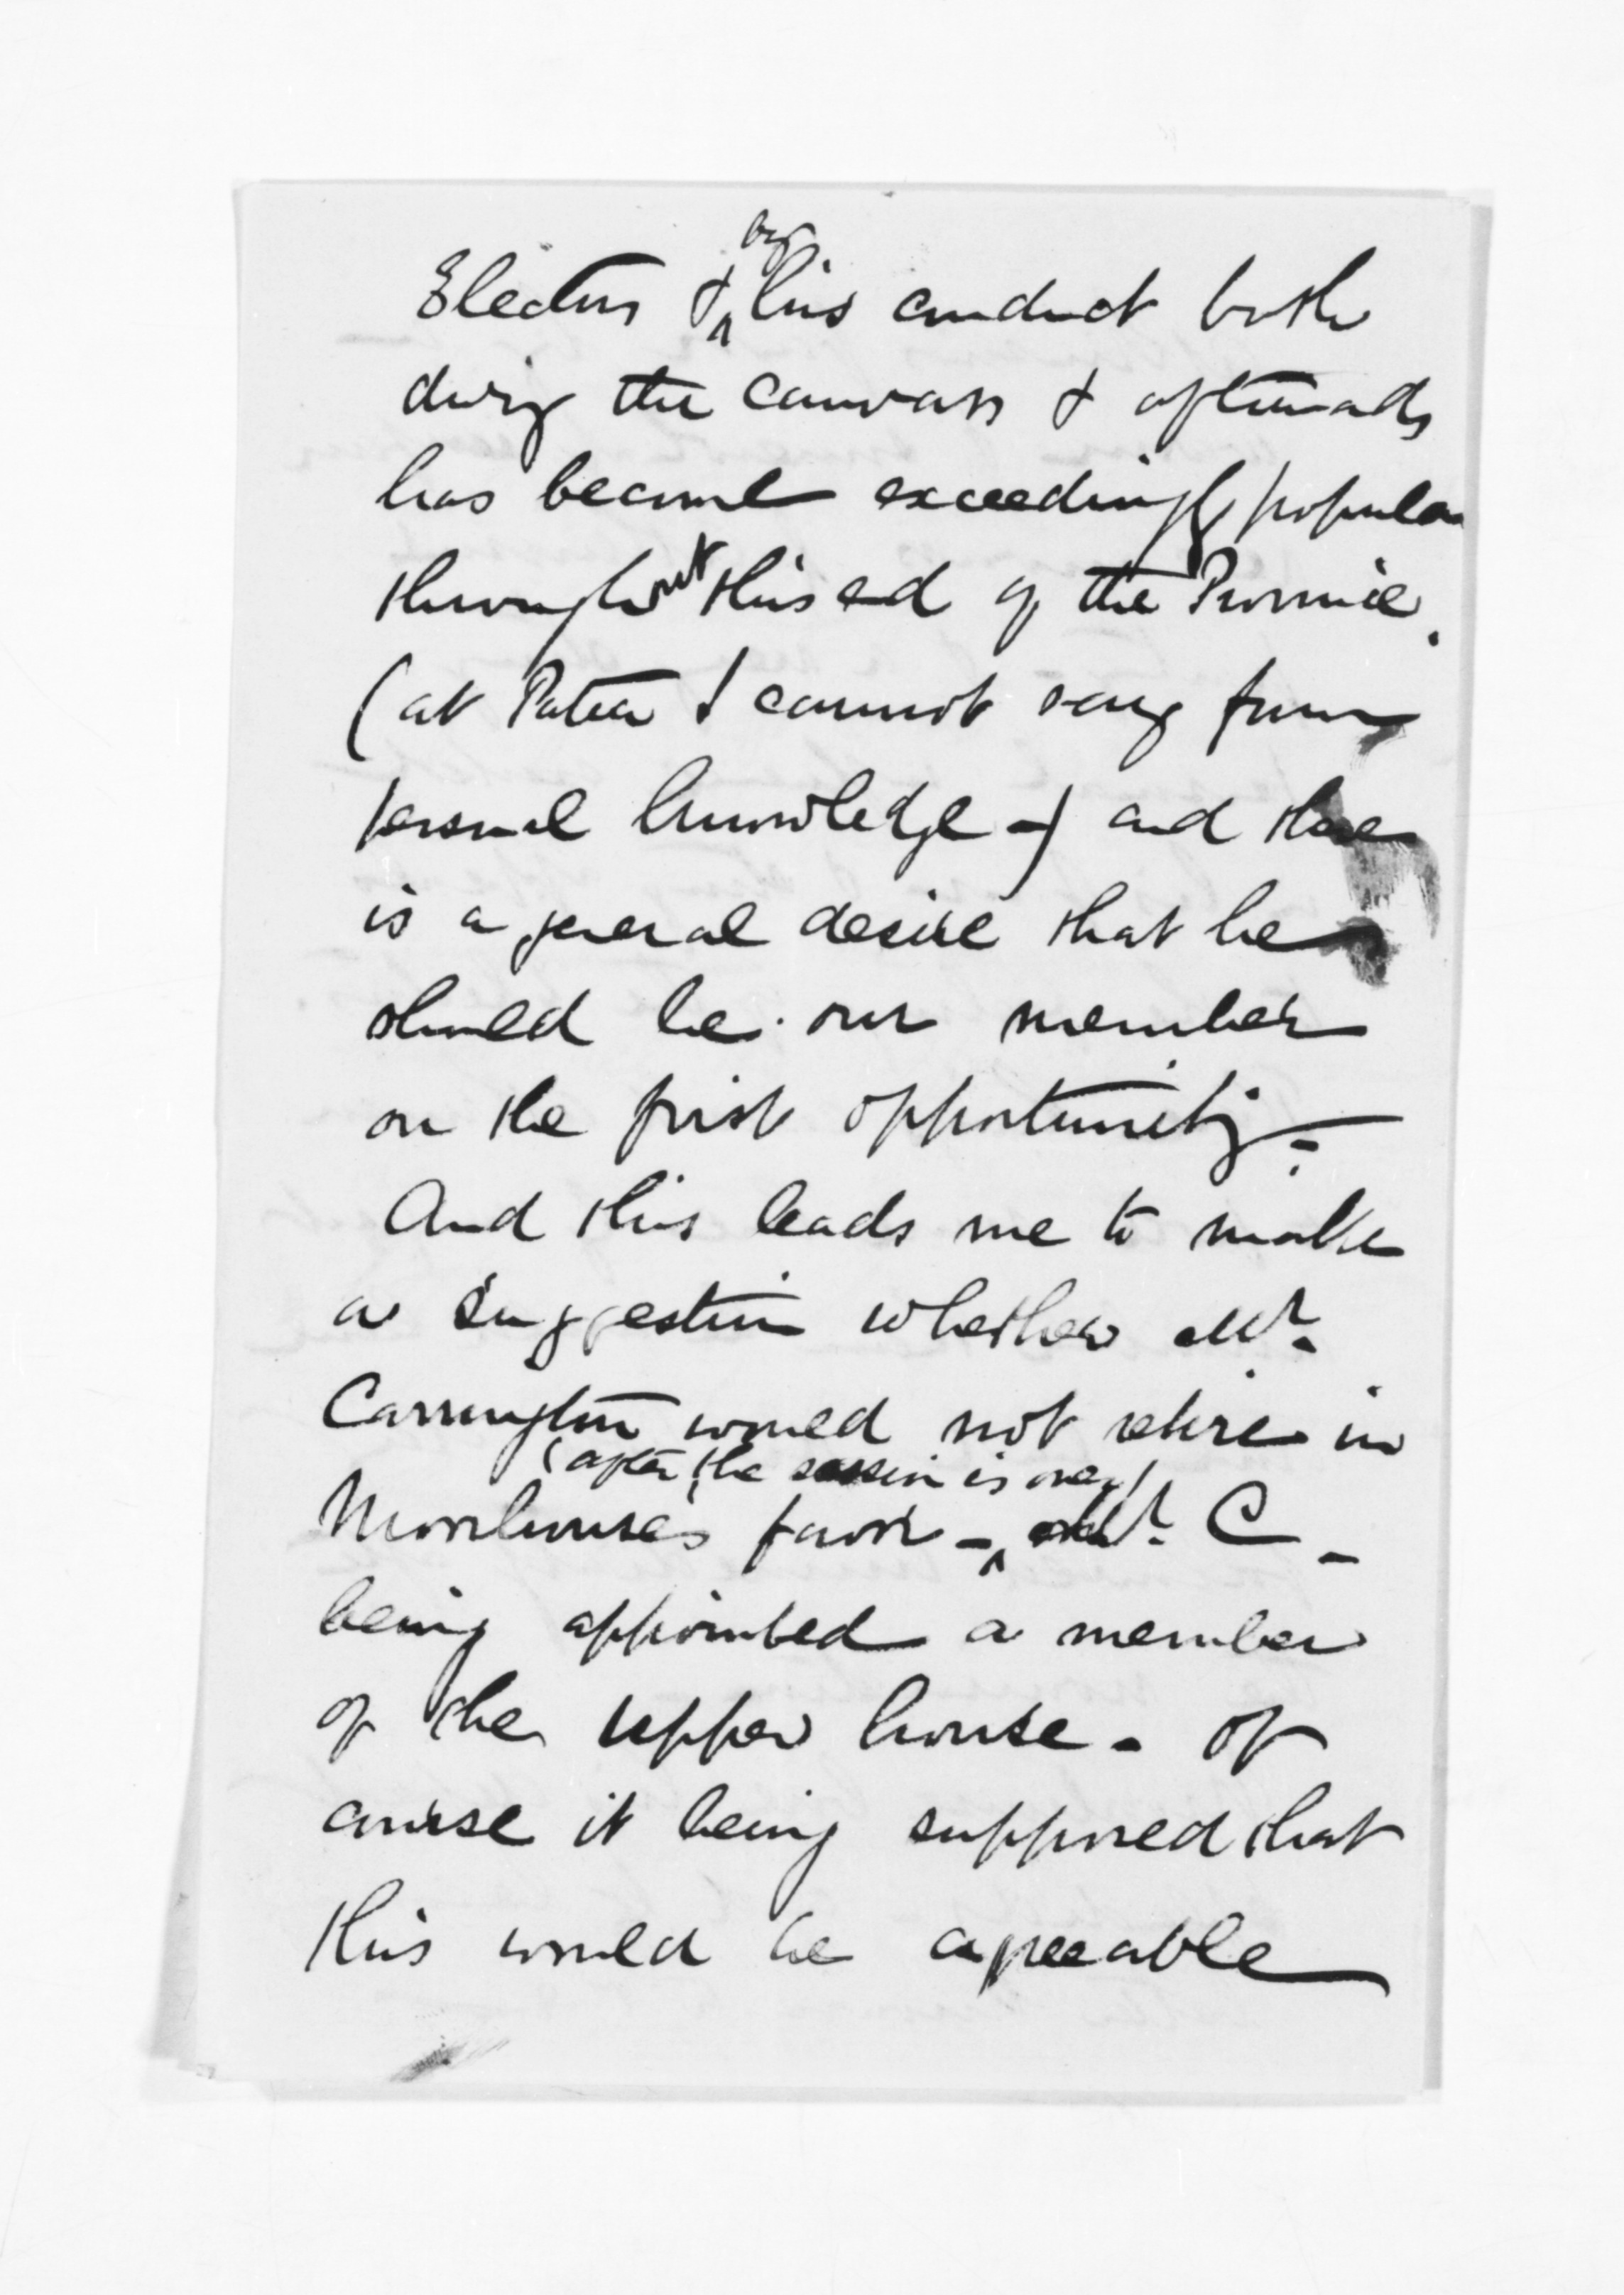 Electors & by his conduct both
during the canvass & afterwards
has become exceedingly popular
throughout this end of the Province.
(at Patea I cannot say from
personal knowledge -) and there
is a general desire that he
should be our member
on the first opportunity -
And this leads me to make
a suggestion whether Mr.
Carrington would not retire in
(after the session is over)
Moorhouse's favor - Mr. C -
being appointed a member
of the upper house - of
course it being supposed that
this would be agreeable